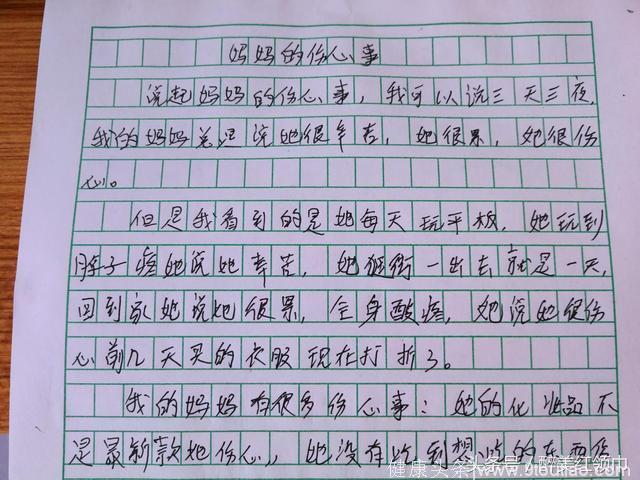 妈妈的伤心事
说起妈妈的伤心事，我可以说三天三夜，
我的妈妈总是说她很辛苦，她很累，她很伤
心。
但是我看到的是她每天玩平板，她玩到
脖子疼她说她辛苦，她逛街一出去就是一天，
回到家她说她很累，全身酸疼，她说她很伤
心前几天买的衣服现在打折了。
我的妈妈有很多伤心事：她的化妆品不
是最新款她伤心，她没有吃到想吃的东西伤
健康头条
头条号/醉美红领巾